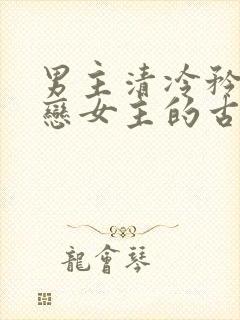 男主清冷矜
戀女主的古
龍會琴